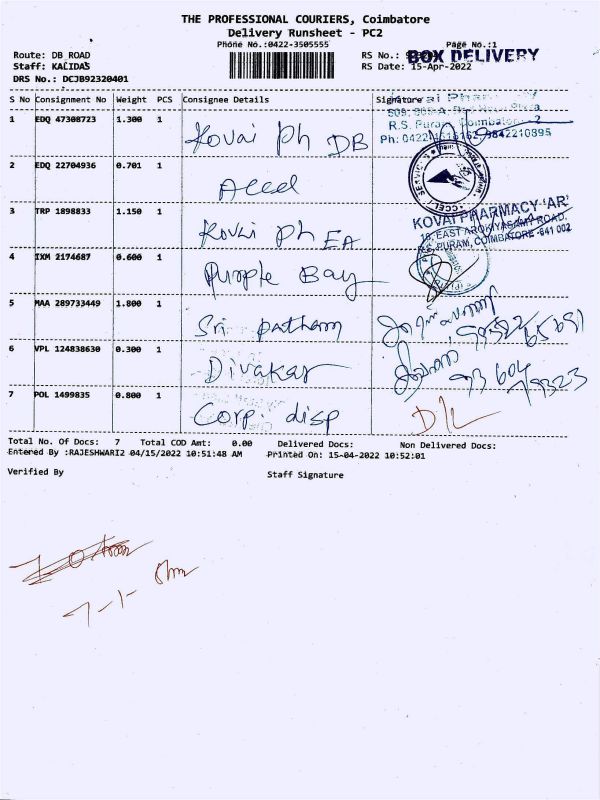 THE PROFESSIONAL COURIERS, Coimbatore
Delivery Runsheet - PC2
Phone No.:0422-3505555
Page No.:1
Route: DB ROAD
RS No.:
BOX DELIVERY
Staff: KALIDAS
RS Date: 15-Apr-2022
DRS No.: DCJB92320401
S No Consignment No Weight PCS Consignee Details Signature
1 EDQ 47308723 1.300 1 Kovai Ph DB
R.S. Puram, Coimbatore - 2
9842210895
2 EDQ 22704936 0.701 1 Accel
3 TRP 1898833 1.150 1 Kovai Ph EA
KOVAI PHARMACY 'AR'
EAST AROKIYASAMY ROAD,
PURAM, COIMBATORE -641 002
4 IXM 2174687 0.600 1 Purple Bay
5 MAA 289733449 1.800 1 Sri patham
6 VPL 124838630 0.300 1 Divakar
7 POL 1499835 0.800 1 Corp. disp
Total No. Of Docs: 7 Total COD Amt: 0.00 Delivered Docs: Non Delivered Docs:
Entered By :RAJESHWARI2 04/15/2022 10:51:48 AM Printed On: 15-04-2022 10:52:01
Verified By Staff Signature